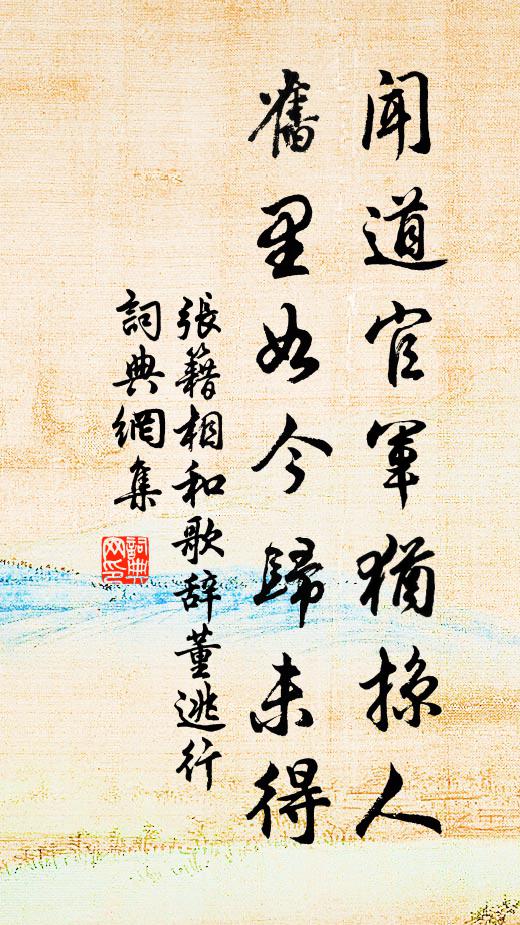 聞道官軍猶掠人
舊里如今歸未得
張籍相和歌辞董逃行
詞典網集
詞典网印